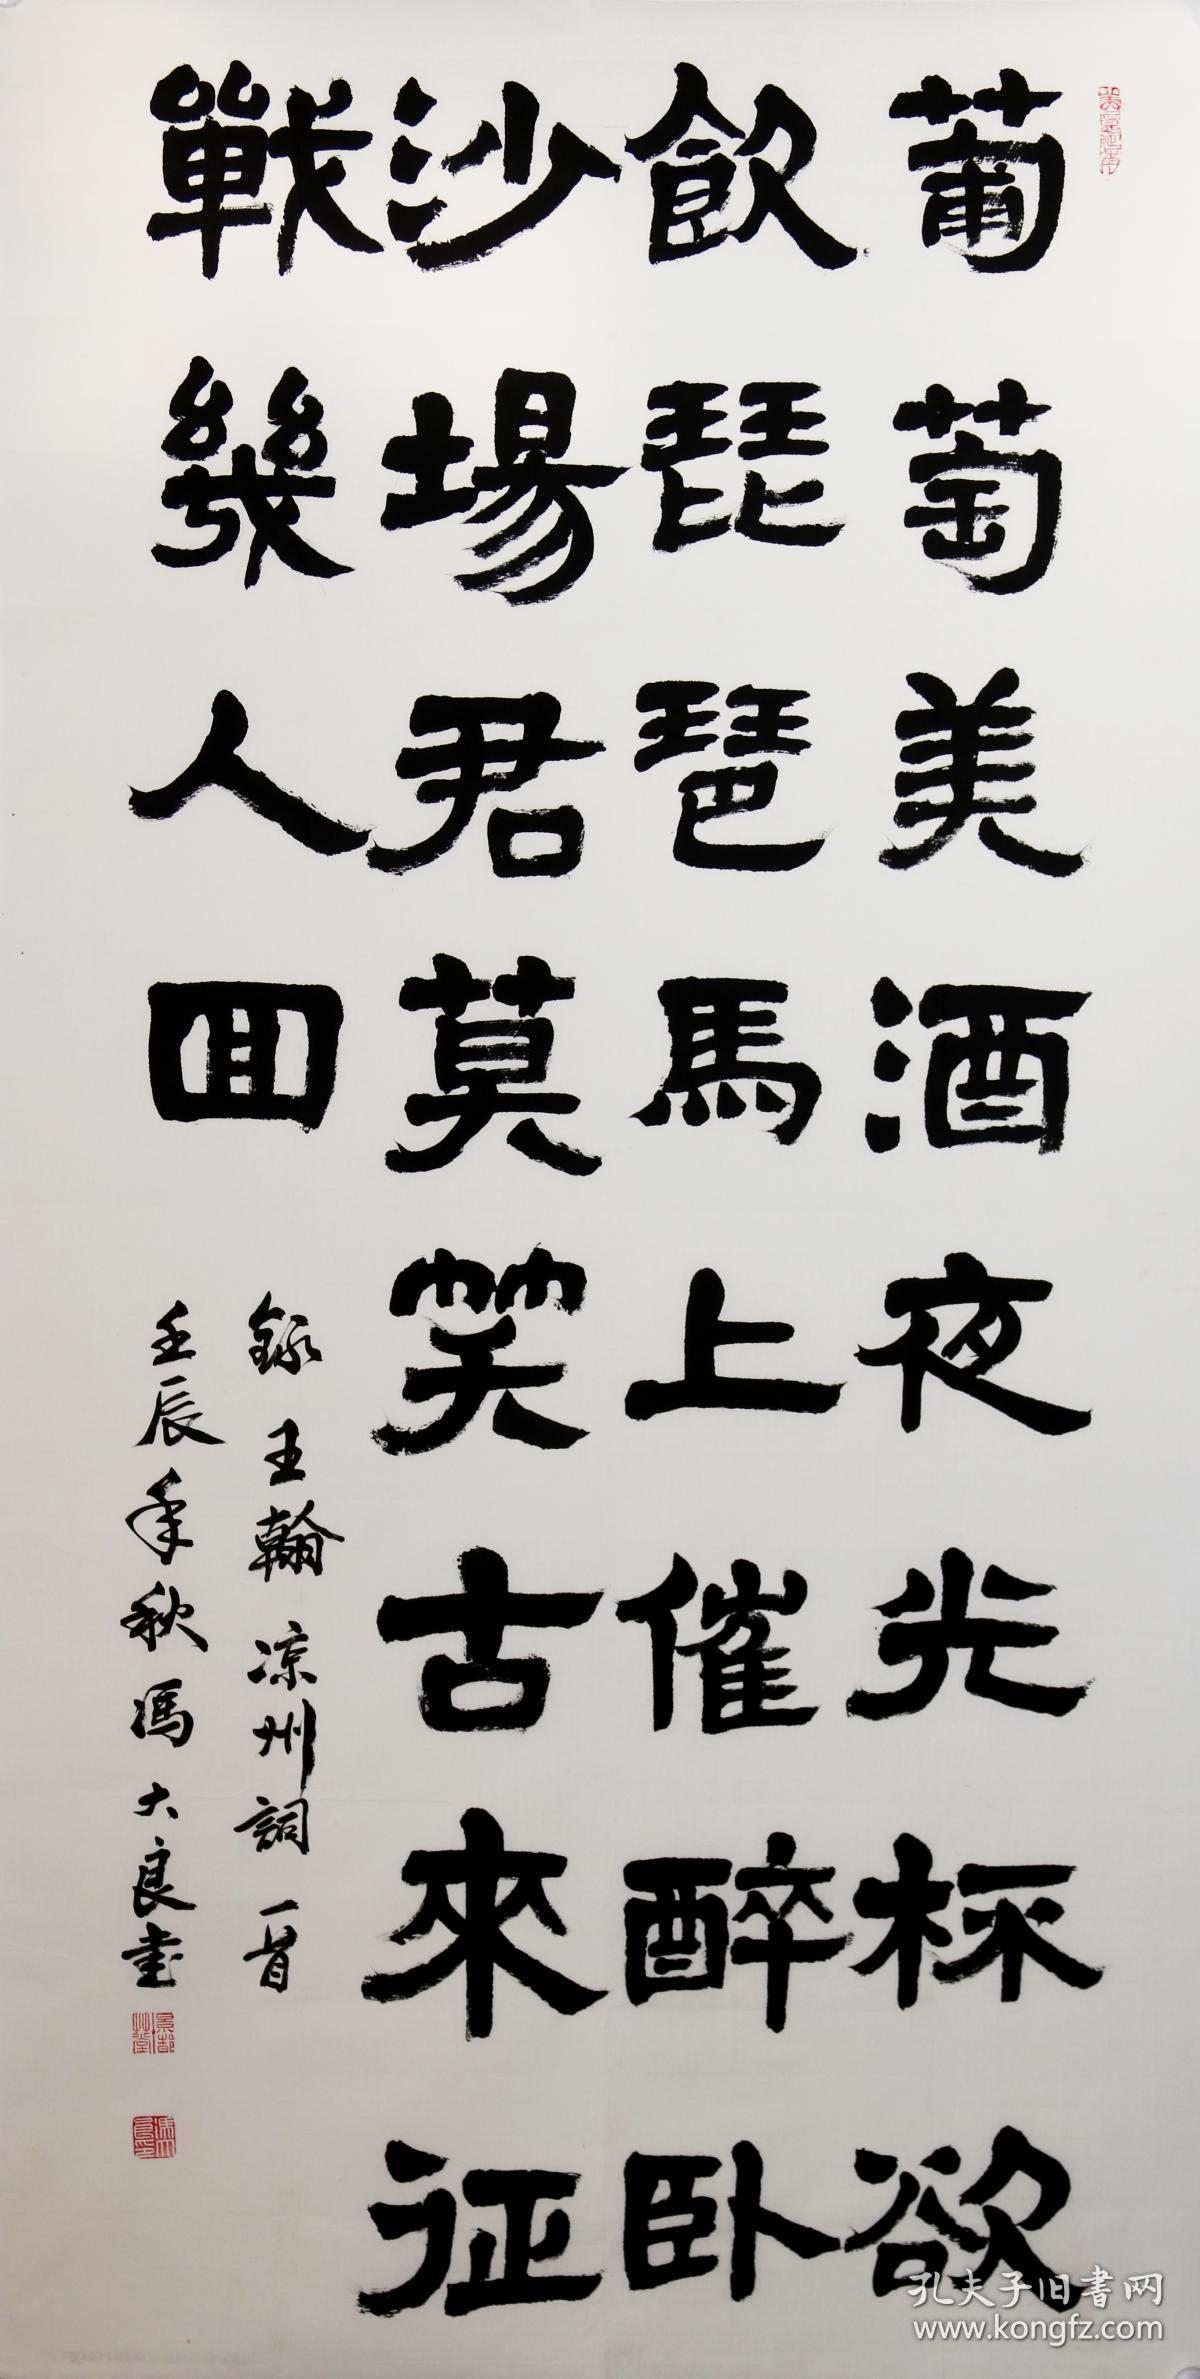 葡萄美酒夜光杯欲
飲琵琶馬上催醉卧
沙場君莫笑古來征
戰幾人回
録王翰凉州詞一首
壬辰年秋馮大良書
孔夫子旧书网
www.kongfz.com